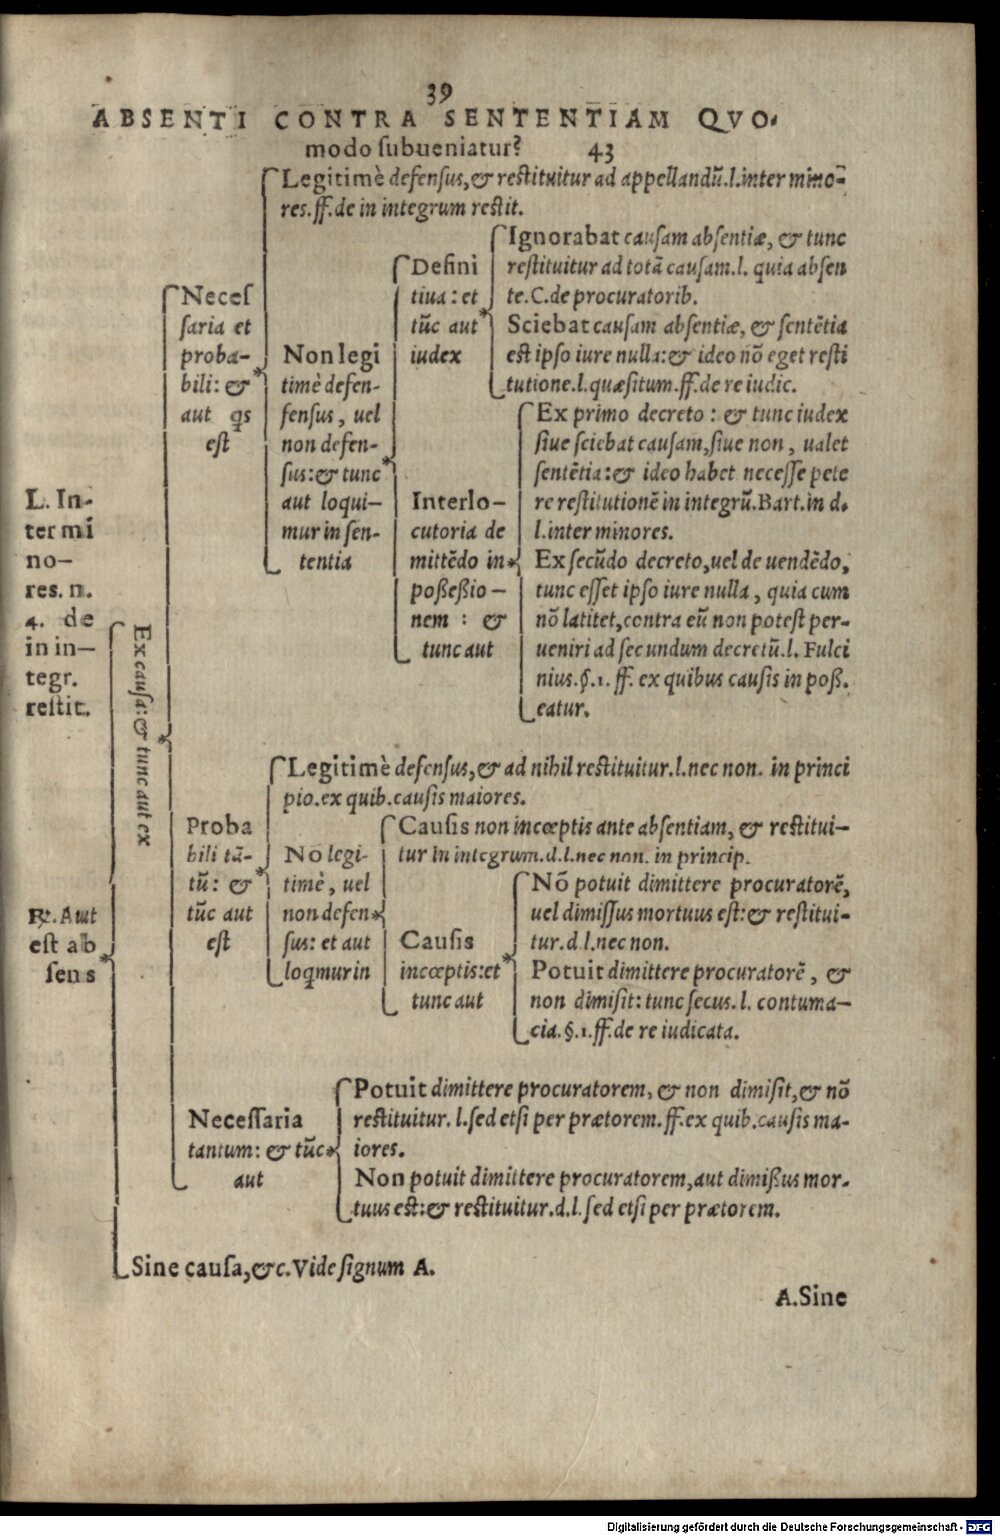 39
ABSENTI CONTRA SENTENTIAM QVO-
modo subueniatur? 43
L. In-
ter mi
no-
res. n.
4. de
in in-
tegr.
restit.
R. Aut
est ab
sens
Ex causa: & tunc aut ex
Neces
saria et
proba-
bili: &
aut qs
est
Legitimè defensus, & restituitur ad appellandū.l.inter mino-
res.ff.de in integrum restit.
Non legi
timè defen-
fensus, uel
non defen-
sus: & tunc
aut loqui-
mur in sen-
tentia
Defini
tiua: et
tūc aut
iudex
Ignorabat causam absentiæ, & tunc
restituitur ad totā causam.l. quia absen
te.C.de procuratorib.
Sciebat causam absentiæ, & sentētia
est ipso iure nulla: & ideo nō eget resti
tutione.l.quæsitum.ff.de re iudic.
Interlo-
cutoria de
mittēdo in
poßeßio-
nem : &
tunc aut
Ex primo decreto: & tunc iudex
siue sciebat causam, siue non, ualet
sentētia: & ideo habet necesse pete
re restitutionē in integrū.Bart.in d.
l.inter minores.
Ex secūdo decreto, uel de uendēdo,
tunc esset ipso iure nulla, quia cum
nō latitet, contra eū non potest per-
ueniri ad secundum decretū.l. Fulci
nius.§.1. ff. ex quibus causis in poß.
eatur.
Proba
bili tā-
tū: &
tūc aut
est
Legitimè defensus, & ad nihil restituitur.l.nec non. in princi
pio.ex quib.causis maiores.
Nō legi-
timè, uel
non defen
sus: et aut
loqmur in
Causis non incœptis ante absentiam, & restitui-
tur in integrum.d.l.nec non. in princip.
Causis
incœptis: et
tunc aut
Nō potuit dimittere procuratorē,
uel dimissus mortuus est: & restitui-
tur.d.l.nec non.
Potuit dimittere procuratorē, &
non dimisit: tunc secus.l. contuma-
cia.§.1.ff.de re iudicata.
Necessaria
tantum: & tūc
aut
Potuit dimittere procuratorem, & non dimisit, & nō
restituitur. l.sed etsi per prætorem. ff.ex quib.causis ma-
iores.
Non potuit dimittere procuratorem, aut dimißus mor-
tuus est: & restituitur.d.l.sed etsi per prætorem.
Sine causa, &c. Vide signum A.
A.Sine
Digitalisierung gefördert durch die Deutsche Forschungsgemeinschaft - DFG